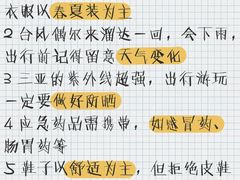 衣服以春夏装为主
2 台风偶尔来溜达一回，会下雨，
出行前记得留意天气变化
3 三亚的紫外线超强，出行游玩
一定要做好防晒
4 应急药品需携带，如感冒药、
肠胃药等
5 鞋子以舒适为主，但拒绝皮鞋